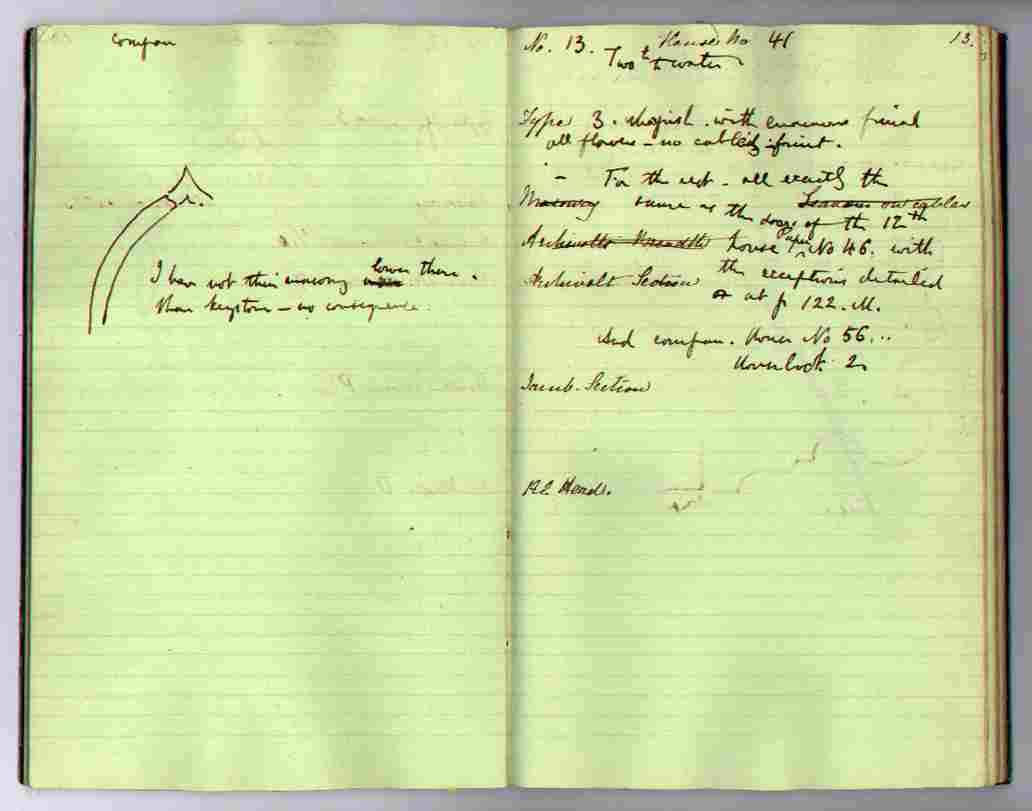 compan
I have not their masonry lower there.
than keystone - no consequence.
No. 13. House No 41
13.
Two to water
Type 3. with enormous finial
all flowers - no cabled front.
- For the rest - all exactly the
Masonry same as the doors of the 12th
Archivolts Breadth house Paper No 46. with
Archivolt Section the exceptions detailed
at p 122. M.
And compan. House No 56...
Jamb-Section
R2 Heads.